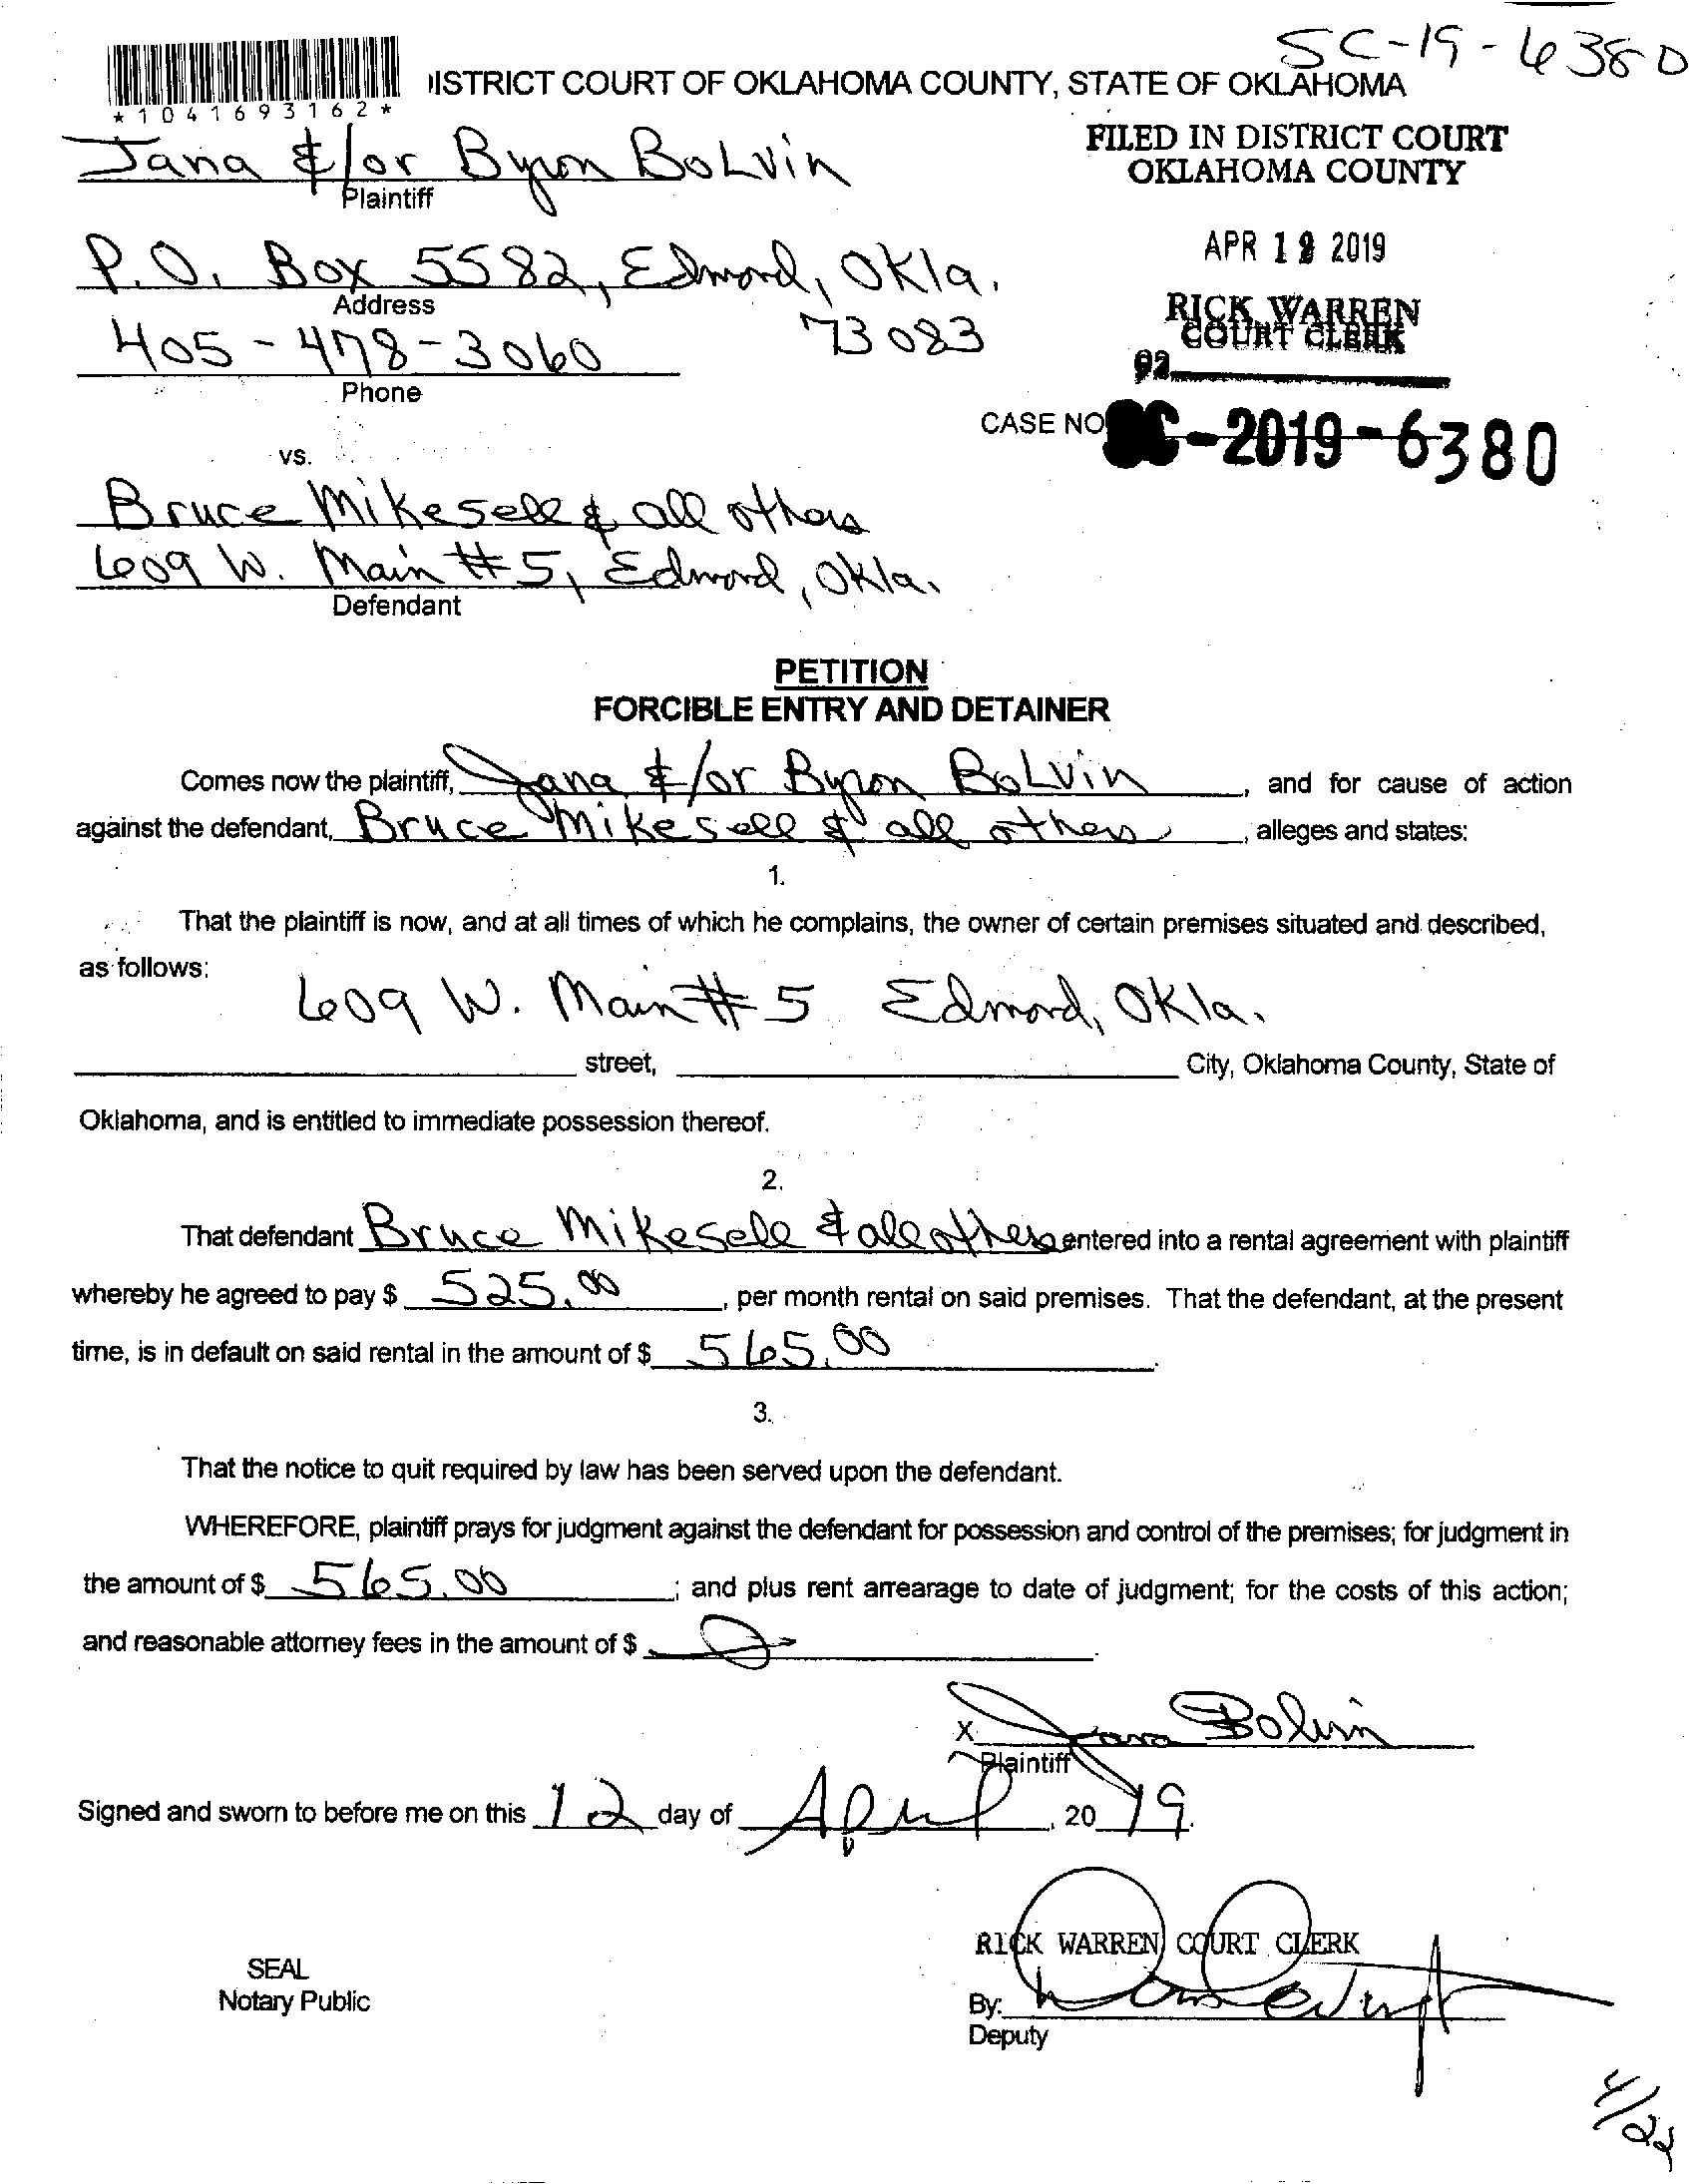 SC-19-6380
ISTRICT COURT OF OKLAHOMA COUNTY, STATE OF OKLAHOMA
*1041693162*
Jana &/or Byron BoLvin
Plaintiff
FILED IN DISTRICT COURT
OKLAHOMA COUNTY
P.O. Box 5582, Edmond, Okla.
Address
APR 12 2019
405-478-3060 73083
Phone
RICK WARREN
COURT CLERK
92
CASE NO SC-2019-6380
vs.
Bruce Mikesell & all others
609 W. Main #5, Edmond, Okla.
Defendant
PETITION
FORCIBLE ENTRY AND DETAINER
Comes now the plaintiff, Jana &/or Byron BoLvin, and for cause of action
against the defendant, Bruce Mikesell & all others, alleges and states:
1.
That the plaintiff is now, and at all times of which he complains, the owner of certain premises situated and described,
as follows:
609 W. Main #5 Edmond, Okla.
street, City, Oklahoma County, State of
Oklahoma, and is entitled to immediate possession thereof.
2.
That defendant Bruce Mikesell & all others entered into a rental agreement with plaintiff
whereby he agreed to pay $ 525.00, per month rental on said premises. That the defendant, at the present
time, is in default on said rental in the amount of $ 565.00.
3.
That the notice to quit required by law has been served upon the defendant.
WHEREFORE, plaintiff prays for judgment against the defendant for possession and control of the premises; for judgment in
the amount of $ 565.00; and plus rent arrearage to date of judgment; for the costs of this action;
and reasonable attorney fees in the amount of $
X Jana Bolvin
Plaintiff
Signed and sworn to before me on this 12 day of April, 2019.
RICK WARREN COURT CLERK
SEAL
Notary Public
By:
Deputy
4/22